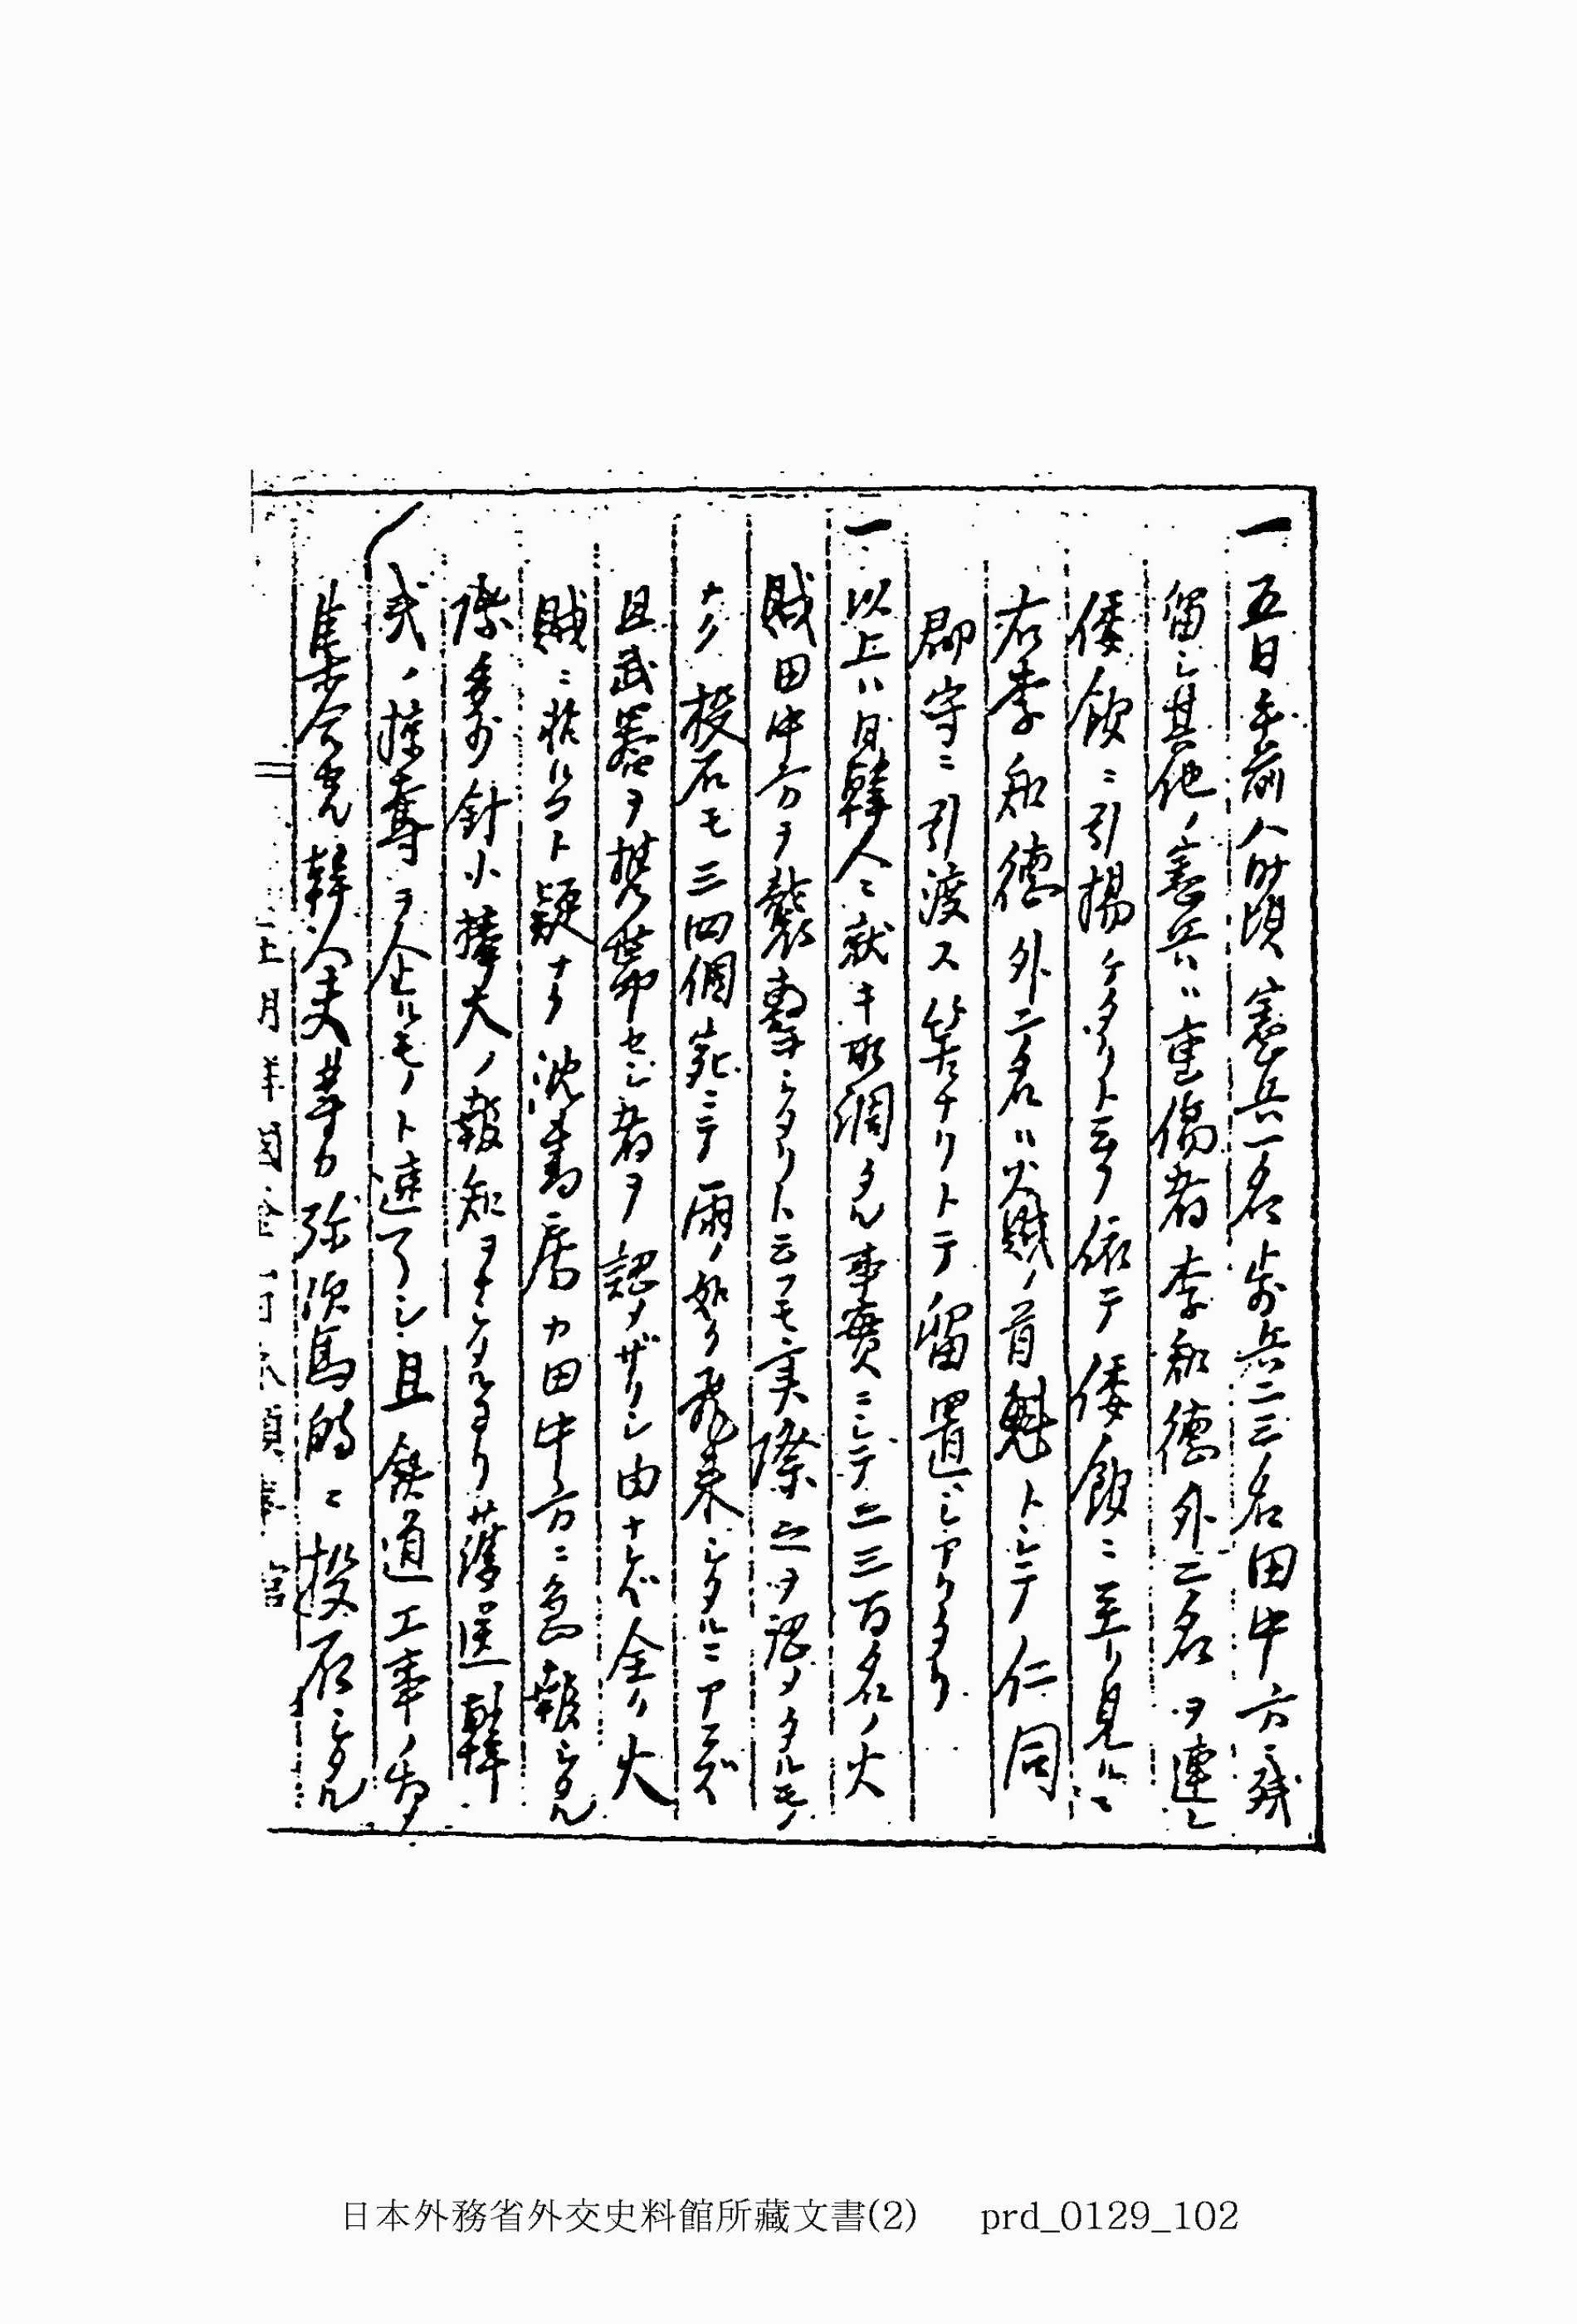 一 五日午前八時頃憲兵一名歩兵二三名田中方ニ残
留シ其他ノ憲兵ハ重傷者李知徳外二名ヲ連レ
倭館ニ引揚ケタリト云フ依テ倭館ニ至リ見ルニ
右李知徳外二名ハ火賊ノ首魁トシテ仁同
郡守ニ引渡ス筈ナリトテ留置シアリタリ
一 以上ハ日韓人ニ就キ取調タル事實ニシテ二三百名ノ火
賊田中方ヲ襲撃シタリト云フモ実際之ヲ認メタルモノ
ナク投石モ三四個宛ニテ雨ノ如ク飛来シタルニアラズ
且武器ヲ携帯セシ者ヲ認メザリシ由ナレバ全ク火
賊ニ非ルコト疑ナク沈書房カ田中方ニ急報シタル
際多少針小棒大ノ報知ヲナシタルヨリ護送韓
貨ノ掠奪ヲ企ルモノト速了シ且鉄道工事ノ為メ
集合セル韓人夫等カ弥次馬的ニ投石シタル
在 月 国 日本領事館
日本外務省外交史料館所藏文書(2) prd_0129_102